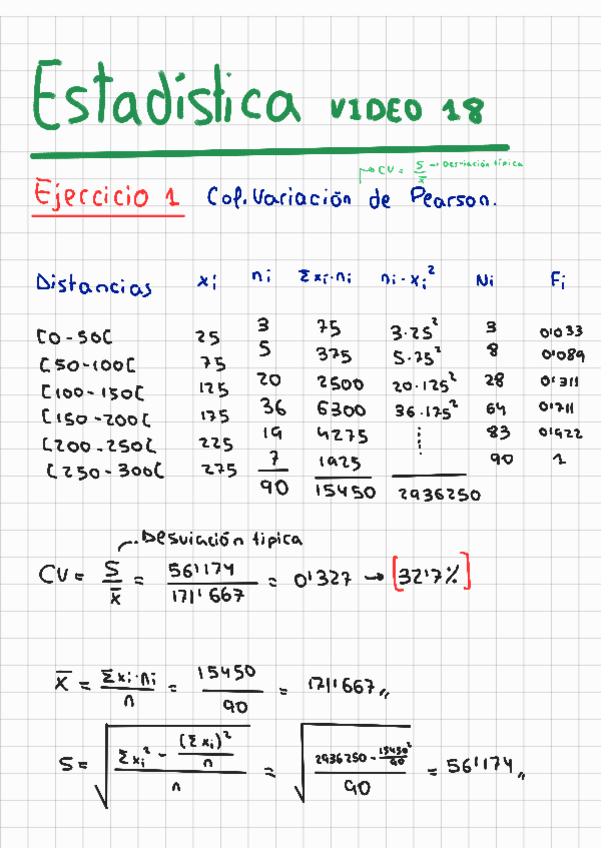 Estadística VIDEO 18
CV = S/x̄ → Desviación típica
Ejercicio 1 Cof. Variación de Pearson.
Distancias xi ni Σxi·ni ni·xi² Ni Fi
[0-50[ 25 3 75 3·25² 3 0'033
[50-100[ 75 5 375 5·75² 8 0'089
[100-150[ 125 20 2500 20·125² 28 0'311
[150-200[ 175 36 6300 36·175² 64 0'711
[200-250[ 225 19 4275 ⋮ 83 0'922
[250-300[ 275 7 1925 90 1
90 15450 2936250
Desviación típica
CV = S/x̄ = 56'174/171'667 = 0'327 → [32'7%]
x̄ = Σxi·ni/n = 15450/90 = 171'667,,
S = √((Σxi² - (Σxi)²/n)/n) = √((2936250 - 15450²/90)/90) = 56'174,,